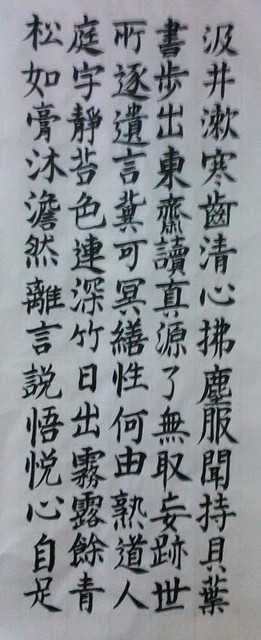 汲井漱寒齒清心拂塵服聞持貝葉
書步出東齋讀真源了無取妄跡世
所逐遺言冀可冥繕性何由熟道人
庭字靜苔色連深竹日出霧露餘青
松如膏沐澹然離言說悟悅心自足